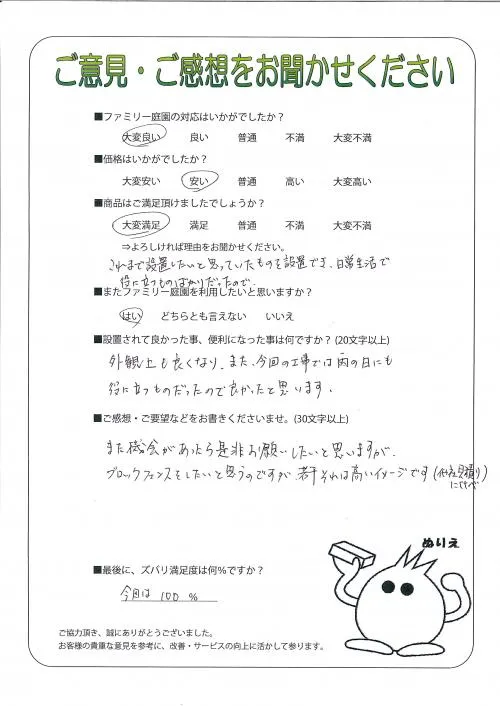 ご意見・ご感想をお聞かせください
■ファミリー庭園の対応はいかがでしたか？
大変良い 良い 普通 不満 大変不満
■価格はいかがでしたか？
大変安い 安い 普通 高い 大変高い
■商品はご満足頂けましたでしょうか？
大変満足 満足 普通 不満 大変不満
⇒よろしければ理由をお聞かせください。
これまで設置したいと思っていたものを設置でき、日常生活で
役に立つものばかりだったので、
■またファミリー庭園を利用したいと思いますか？
はい どちらとも言えない いいえ
■設置されて良かった事、便利になった事は何ですか？(20文字以上)
外観上も良くなり、また、今回の工事では雨の日にも
役に立つものだったので良かったと思います.
■ご感想・ご要望などをお書きくださいませ。(30文字以上)
また機会があったら是非お願いしたいと思いますが、
ブロックフェンスをしたいと思うのですが、若干それは高いイメージです(他社見積り
にくらべ)
ぬりえ
■最後に、ズバリ満足度は何％ですか？
今回は 100 %
ご協力頂き、誠にありがとうございました。
お客様の貴重な意見を参考に、改善・サービスの向上に活かして参ります。